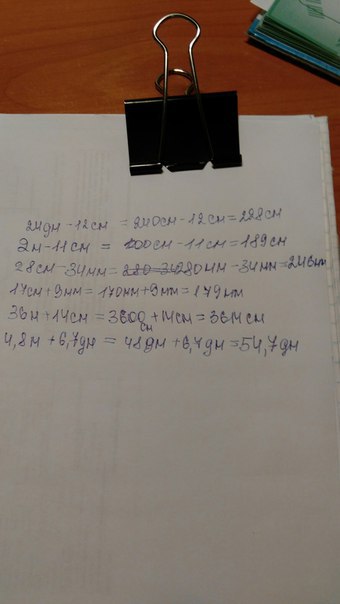 24дм - 12см = 240см - 12см = 228см
2м - 11см = 200см - 11см = 189см
28см - 34мм = 280мм - 34мм = 246мм
17см + 9мм = 170мм + 9мм = 179мм
36м + 14см = 3600см + 14см = 3614см
4,8м + 6,7дм = 48дм + 6,7дм = 54,7дм